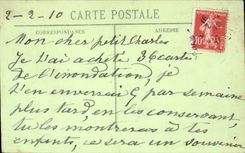 2-2-10 CARTE POSTALE
CORRESPONDANCE ADRESSE
Mon cher petit Charles
Je t'ai acheté 36 cartes
de l'inondation, je
t'en enverrai 6 par semaine
plus tard, en les conservant,
tu les montreras à tes
enfants, ce sera un souvenir
10